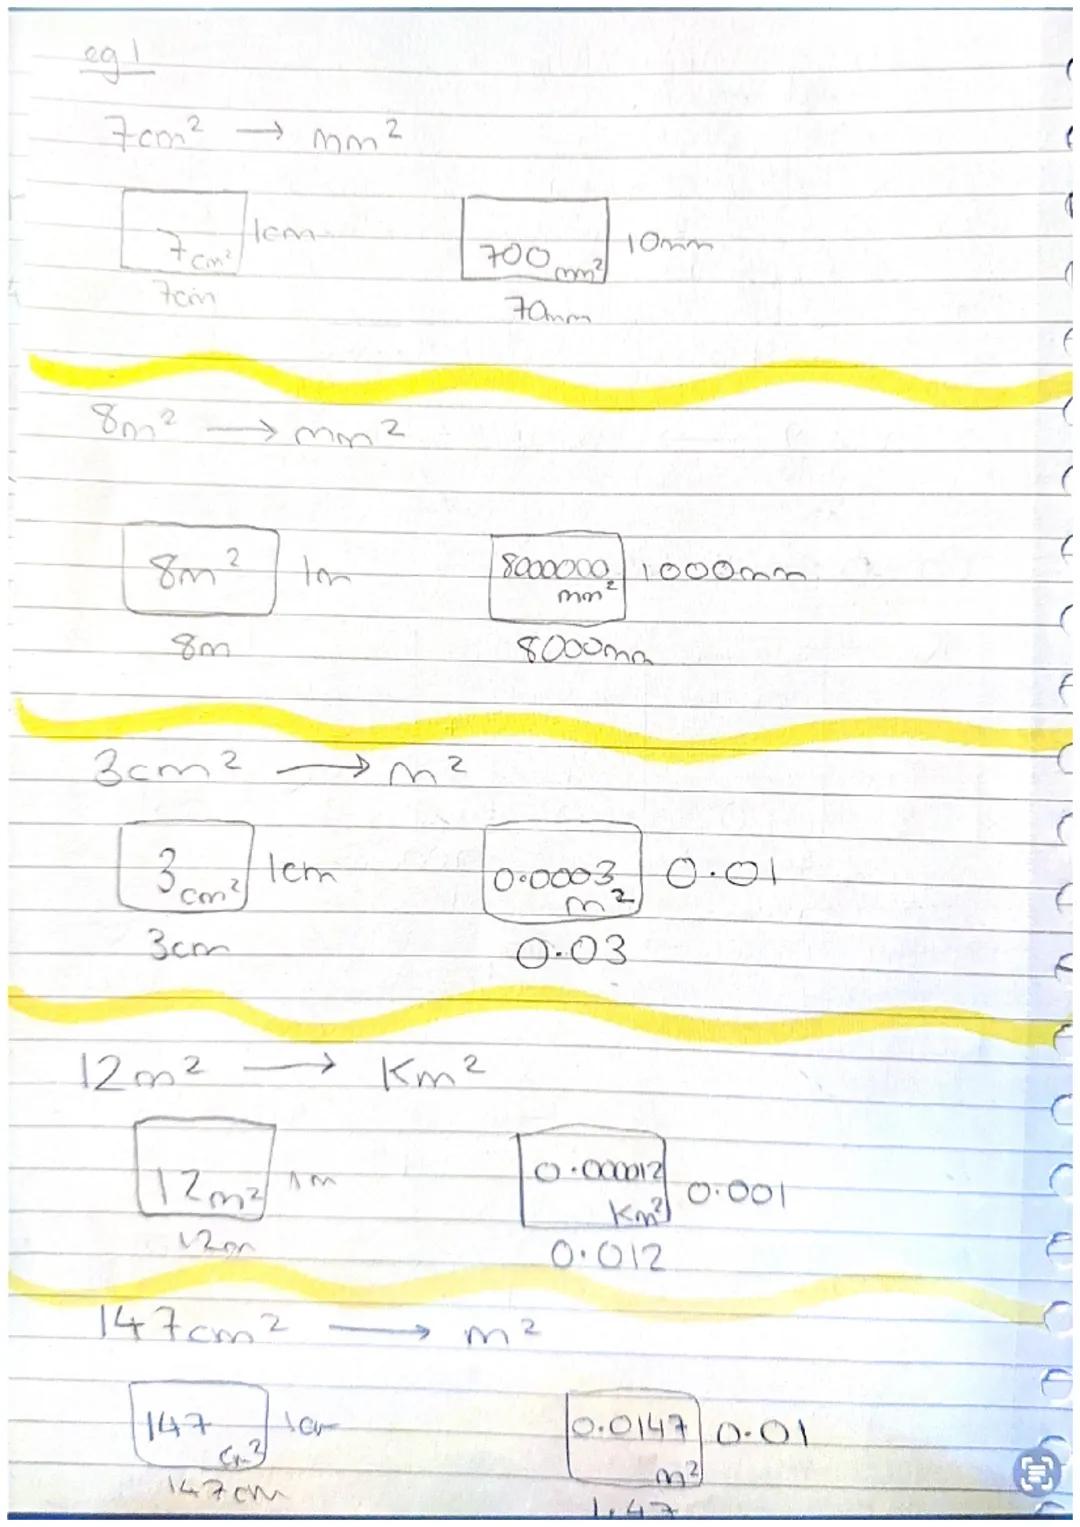 eg 1
7cm² → mm²
7cm² 1cm 700mm² 10mm
7cm 70mm
8m² → mm²
8m² 1m 8000000 mm² 1000mm
8m 8000mm
3cm² → m²
3cm² 1cm 0.0003 m² 0.01
3cm 0.03
12m² → Km²
12m² 1m 0.000012 Km² 0.001
12m 0.012
147cm² → m²
147 cm² 1cm 0.0147 m² 0.01
147cm 1.47